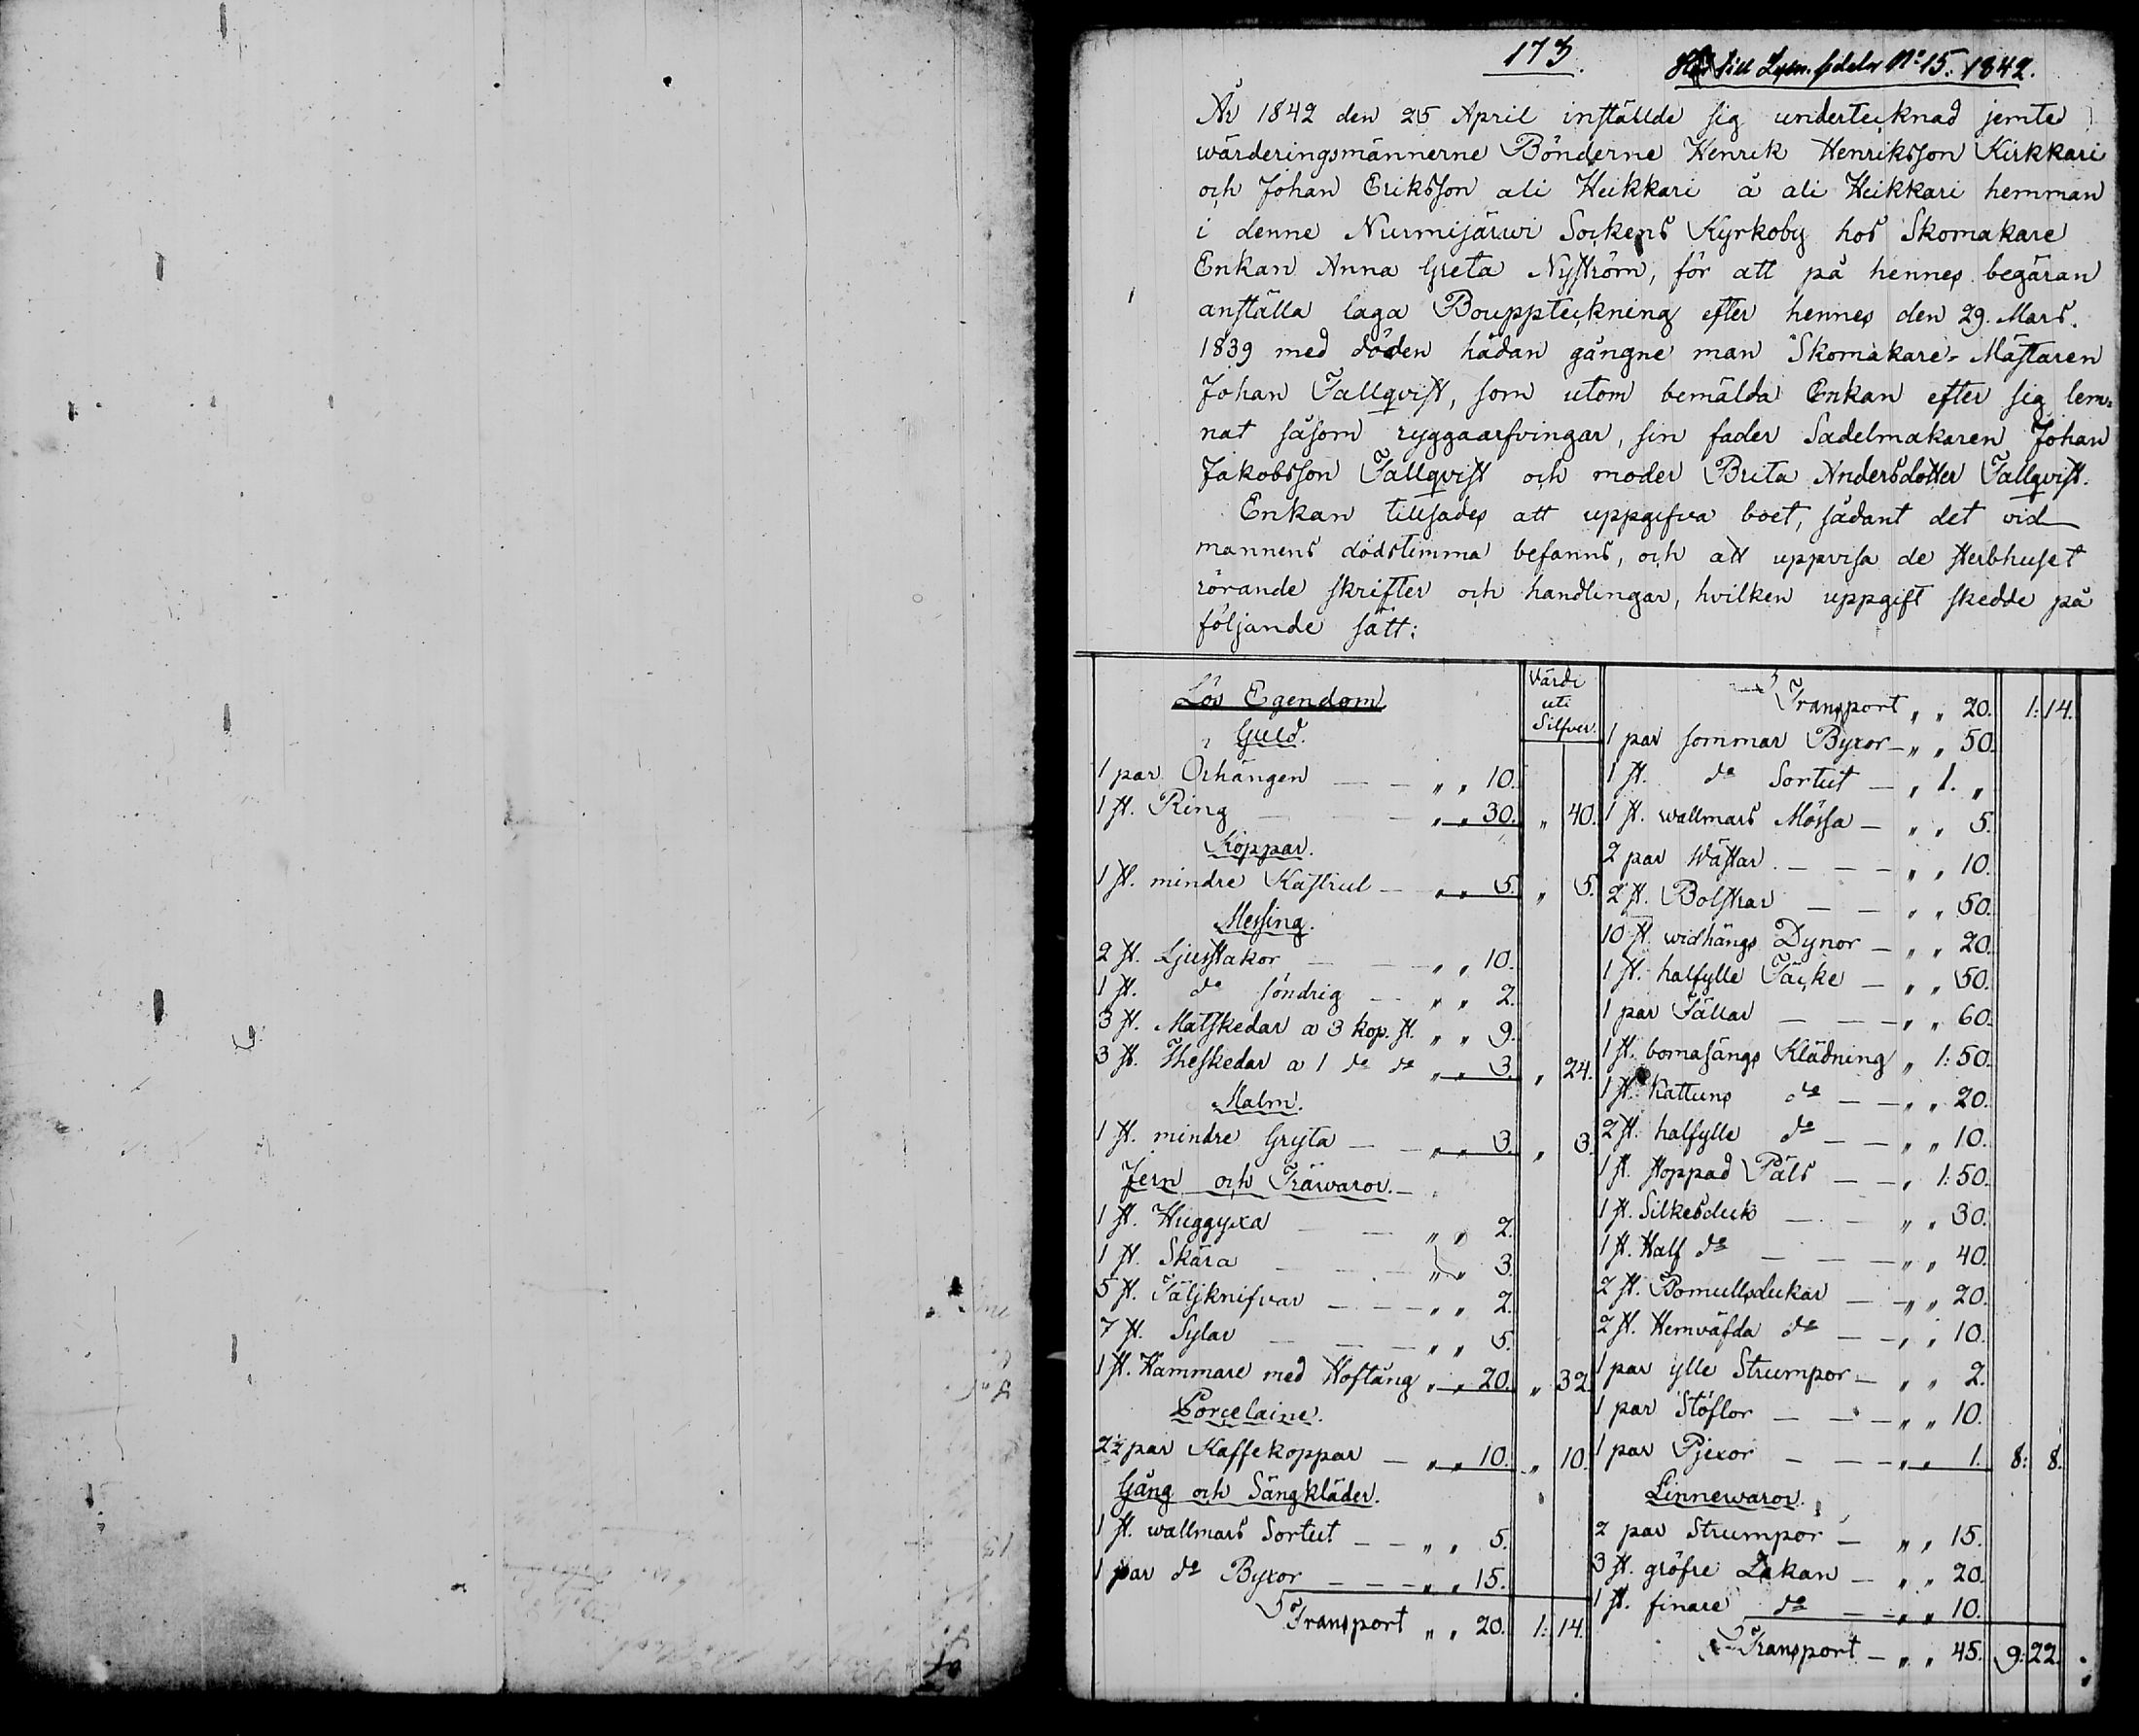 173.
till N:o 15. 1842.
År 1842 den 25 April inställde sig undertecknad jemte
wärderingsmännerne Bönderne Henrik Henriksson Kirkkari
och Johan Eriksson ali Heikkari å ali Heikkari hemman
i denne Nurmijärwi Sockens Kyrkoby hos Skomakare
Enkan Anna Greta Nyström, för att på hennes begäran
anställa laga Bouppteckning efter hennes den 29. Mars.
1839 med döden hädan gångne man Skomakare-Mästaren
Johan Fallqvist, som utom bemälda Enkan efter sig lem=
nat såsom ryggaarfvingar, sin fader Sadelmakaren Johan
Jakobsson Fallqvist och moder Brita Andersdotter Fallqvist.
Enkan tillsades att uppgifva boet, sådant det vid
mannens dödstimma befanns, och att uppvisa de sterbhuset
rörande skrifter och handlingar, hvilken uppgift skedde på
följande sätt:
Lös Egendom
Värde uti Silfver.
Guld.
1 par Örhängen — — " " 10.
1 st. Ring — — " " 30. " 40.
Koppar.
1 st. mindre Kastrul — " " 5. " 5.
Messing.
2 st. Ljusstakor — — " " 10.
1 st. do söndrig — " " 2.
3 st. Matskedar a 3 kop. st. " " 9.
3 st. Theskedar a 1 do do " " 3. " 24.
Malm.
1 st. mindre Gryta — — " " 3. " 3.
Jern och Träwaror. —
1 st. Huggyxa — — " " 2.
1 st. Skära — — " " 3.
5 st. Täljknifvar — — — " " 2.
7 st. Sylar — — — " " 5.
1 st. Hammare med Hoftång " " 20. " 32.
Porcelaine.
2½ par Kaffekoppar — " " 10. " 10.
Gång och Sängkläder.
1 st. wallmars Sortut — — " " 5.
1 par do Byxor — — — " " 15.
Transport " " 20. 1: 14.
Transport " " 20. 1: 14.
1 par sommar Byxor — " " 50.
1 st. do Sortut — " 1. "
1 st. wallmars Mössa — " " 5.
2 par Wästar. — — — " " 10.
2 st. Bolstrar — — " " 50.
10 st. widhängs Dynor — " " 20.
1 st. halfylle Täcke — " " 50.
1 par Fällar — — — " " 60.
1 st. bomasängs Klädning " 1: 50.
1 st. Kattuns do — — " " 20.
2 st. halfylle do — — " " 10.
1 st. stoppad Päls — — " 1: 50.
1 st. Silkesduk — — " " 30.
1 st. Half do — — — " " 40.
2 st. Bomullsdukar — — " " 20.
2 st. Hemväfda do — — " " 10.
1 par ylle Strumpor — " " 2.
1 par Stöflor — — — " " 10.
1 par Pjexor — — — " " 1. 8: 8.
Linnewaror.
2 par Strumpor — " " 15.
3 st. gröfre Lakan — " " 20.
1 st. finare do — — " " 10.
Transport — " " 45. 9: 22.